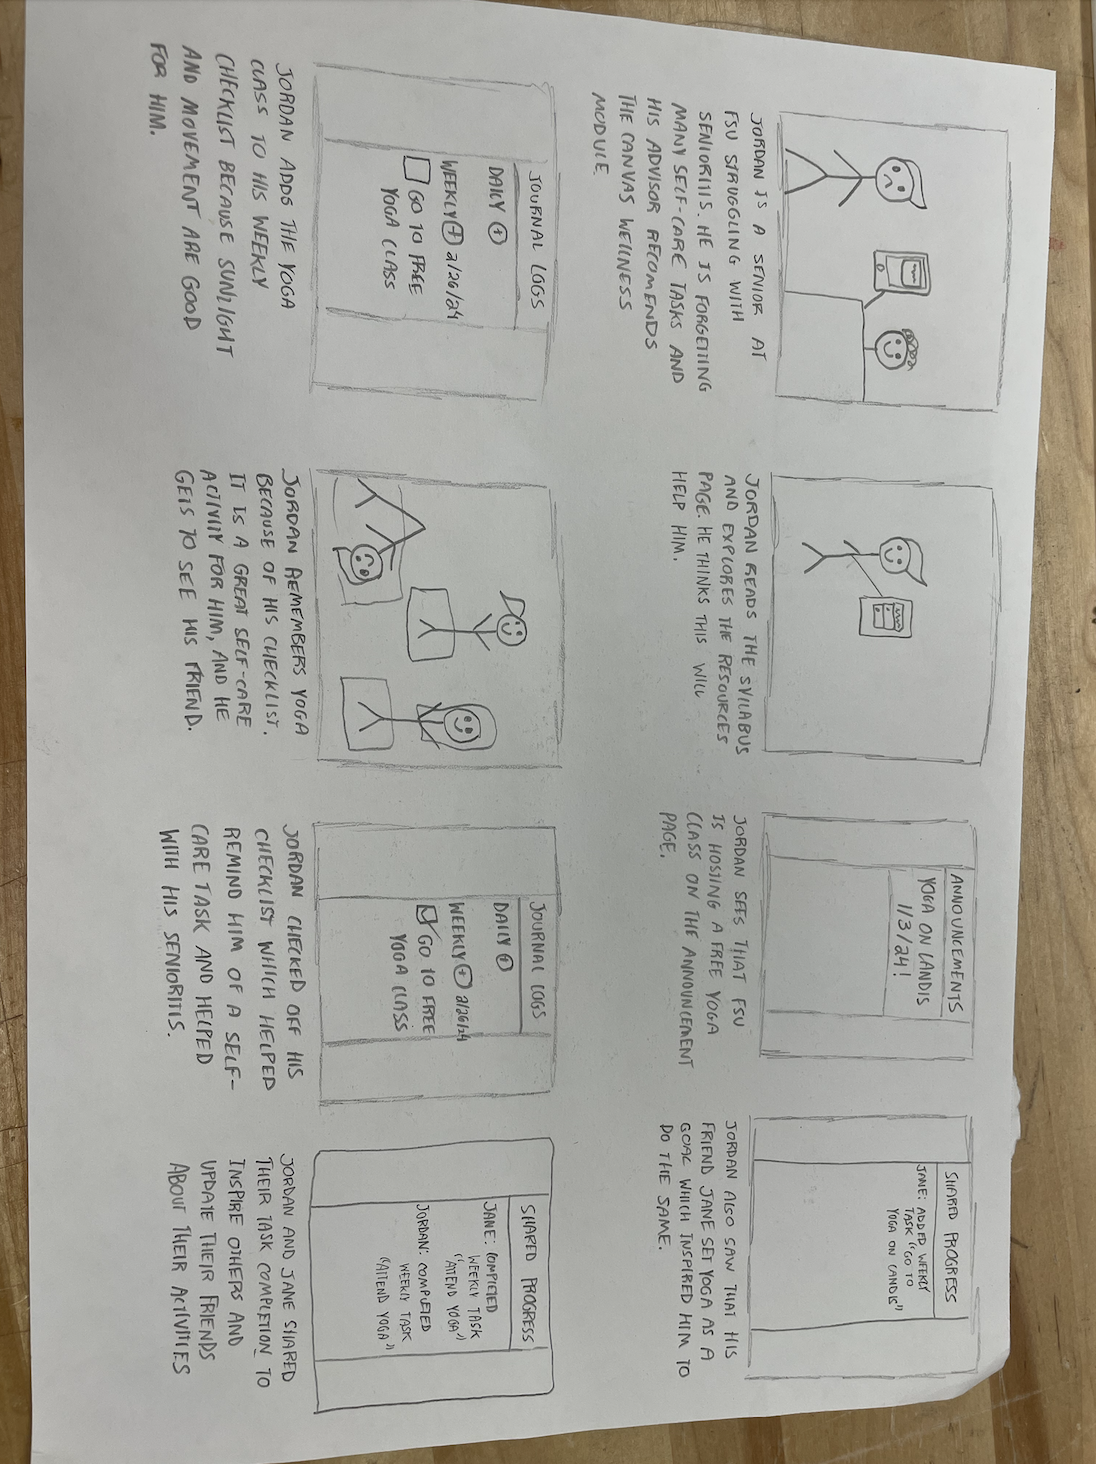 JORDAN IS A SENIOR AT
FSU STRUGGLING WITH
SENIORITIS. HE IS FORGETTING
MANY SELF-CARE TASKS AND
HIS ADVISOR RECOMENDS
THE CANVAS WELLNESS
MODULE
JORDAN READS THE SYLLABUS
AND EXPLORES THE RESOURCES
PAGE. HE THINKS THIS WILL
HELP HIM.
ANNOUNCEMENTS
YOGA ON LANDIS
1/3/24!
JORDAN SEES THAT FSU
IS HOSTING A FREE YOGA
CLASS ON THE ANNOUNCEMENT
PAGE.
SHARED PROGRESS
JANE: ADDED WEEKLY
TASK "GO TO
YOGA ON LANDIS"
JORDAN ALSO SAW THAT HIS
FRIEND JANE SET YOGA AS A
GOAL WHICH INSPIRED HIM TO
DO THE SAME.
JOURNAL LOGS
DAILY +
WEEKLY + 2/26/24
GO TO FREE
YOGA CLASS
JORDAN ADDS THE YOGA
CLASS TO HIS WEEKLY
CHECKLIST BECAUSE SUNLIGHT
AND MOVEMENT ARE GOOD
FOR HIM.
JORDAN REMEMBERS YOGA
BECAUSE OF HIS CHECKLIST.
IT IS A GREAT SELF-CARE
ACTIVITY FOR HIM, AND HE
GETS TO SEE HIS FRIEND.
JOURNAL LOGS
DAILY +
WEEKLY + 2/26/24
GO TO FREE
YOGA CLASS
JORDAN CHECKED OFF HIS
CHECKLIST WHICH HELPED
REMIND HIM OF A SELF-
CARE TASK AND HELPED
WITH HIS SENIORITIS.
SHARED PROGRESS
JANE: COMPLETED
WEEKLY TASK
"ATTEND YOGA"
JORDAN: COMPLETED
WEEKLY TASK
"ATTEND YOGA"
JORDAN AND JANE SHARED
THEIR TASK COMPLETION TO
INSPIRE OTHERS AND
UPDATE THEIR FRIENDS
ABOUT THEIR ACTIVITIES